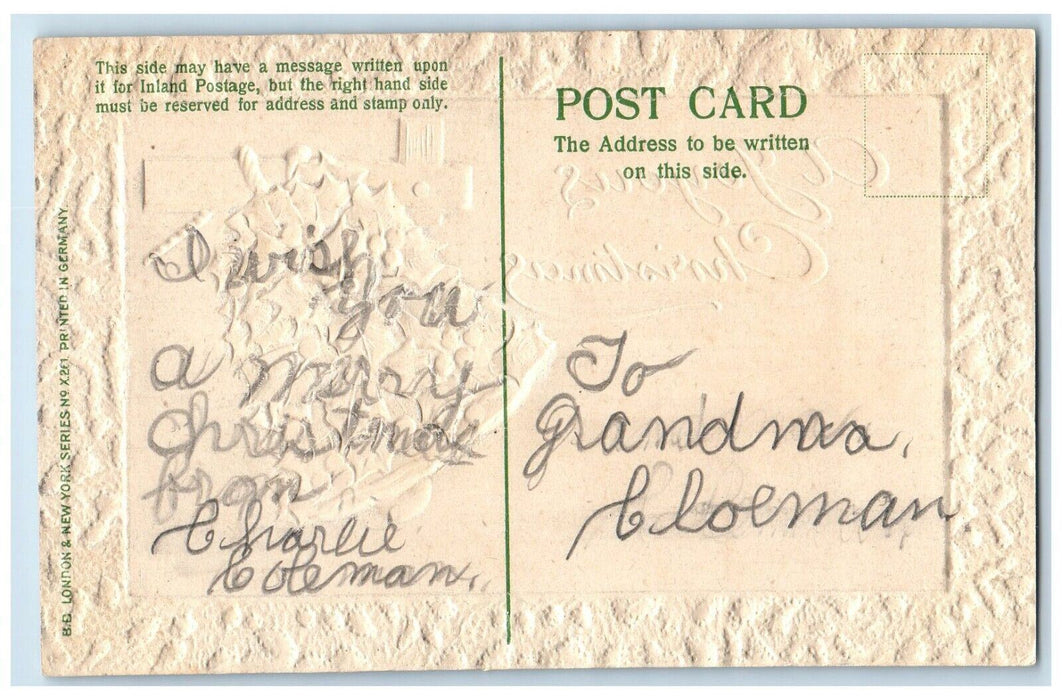 This side may have a message written upon
it for Inland Postage, but the right hand side
must be reserved for address and stamp only.
I wish
you
a merry
Christmas
from
Charlie
Coleman.
B.B. LONDON & NEW YORK SERIES Nº X.261 PRINTED IN GERMANY.
POST CARD
The Address to be written
on this side.
A Joyous
Christmas
To
Grandma,
Cloeman